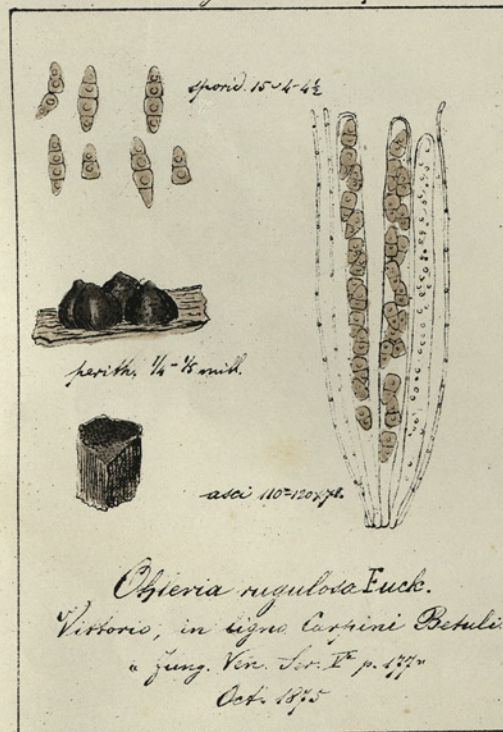 sporid. 15=4-4½
perith. ¼-⅕ mill.
asci 110=120×7-8.
Ohleria rugulosa Fuck.
Vittorio, in ligno Carpini Betuli.
"Fung. Ven. Ser. V<sup>a</sup> p. 177"
Oct. 1875